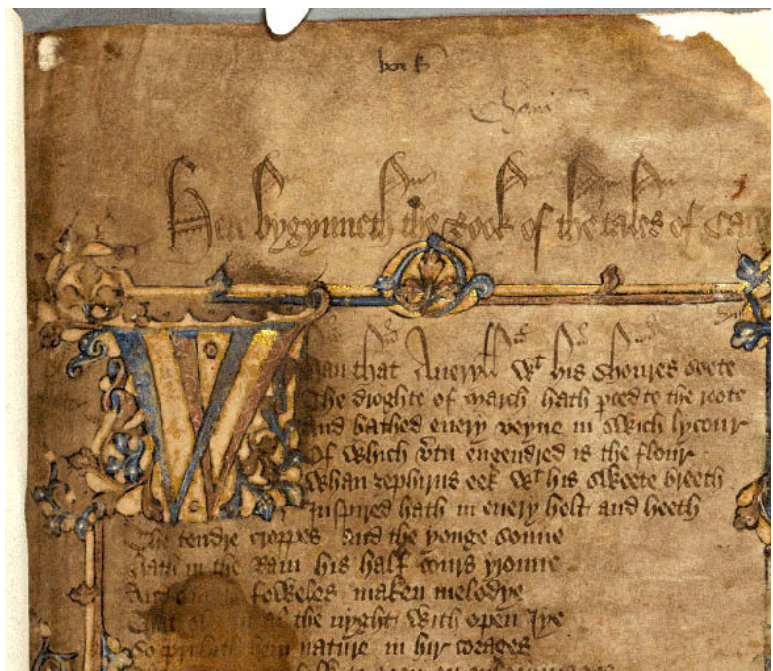 Here bygynneth the Book of the tales of Cau
Whan that Aueryll wt his shoures soote
The droghte of march hath pced to the roote
And bathed euery veyne in swich lycour
Of which vtu engendred is the flour
Whan zephirus eek wt his sweete breeth
Inspired hath in euery holt and heeth
The tendre croppes and the yonge sonne
hath in the Ram his half cours yronne
And foweles maken melodye
al the nyght with open Iye
So hem nature in hir corages